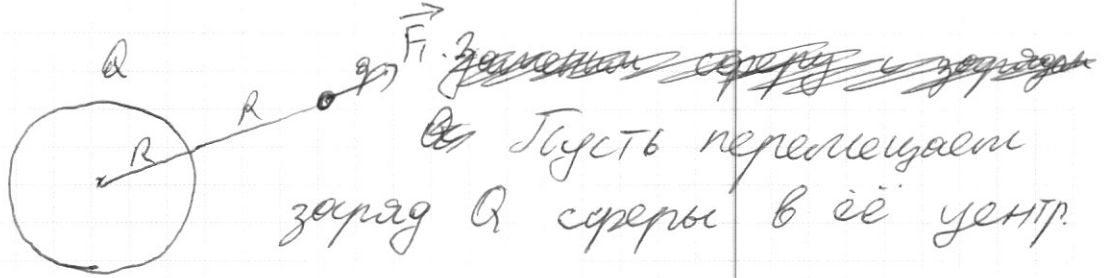 Q
R
R
q
F₁
Пусть перемещаем
заряд Q сферы в её центр.